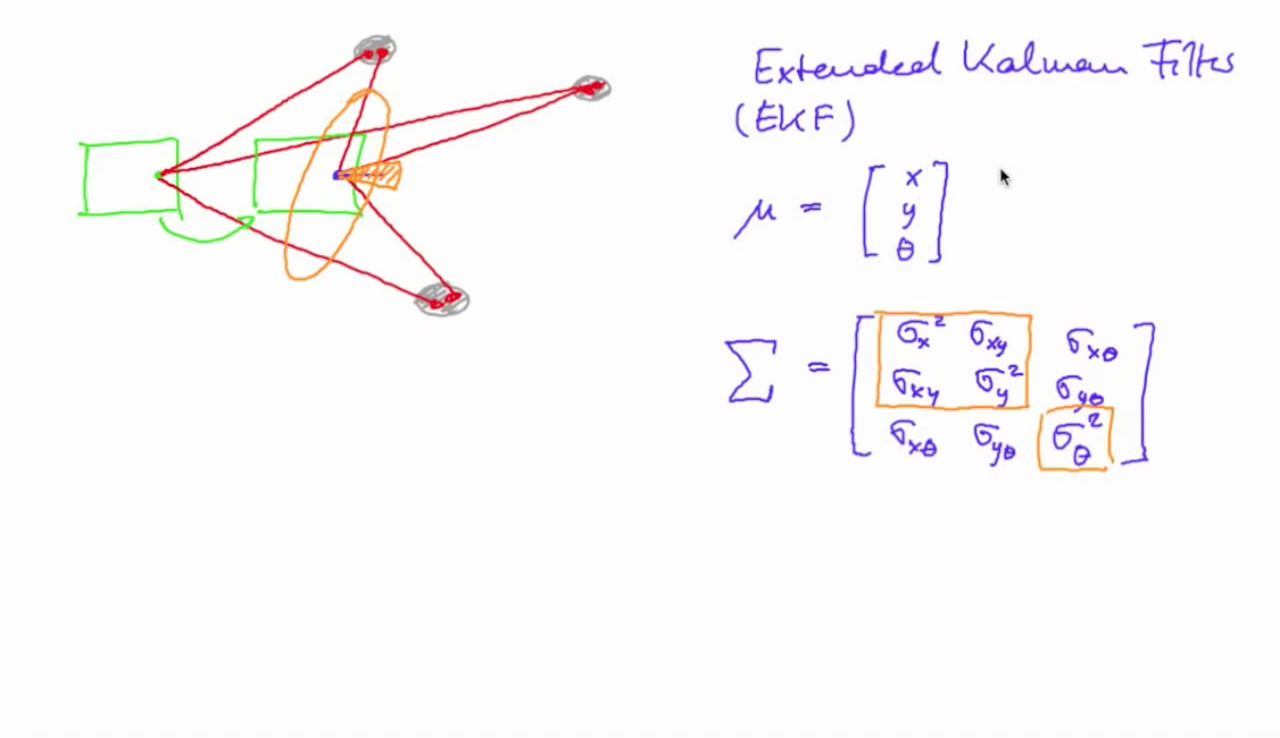 Extended Kalman Filter
(EKF)
μ = [ x
y
θ ]
Σ = [ σx² σxy σxθ
σxy σy² σyθ
σxθ σyθ σθ² ]